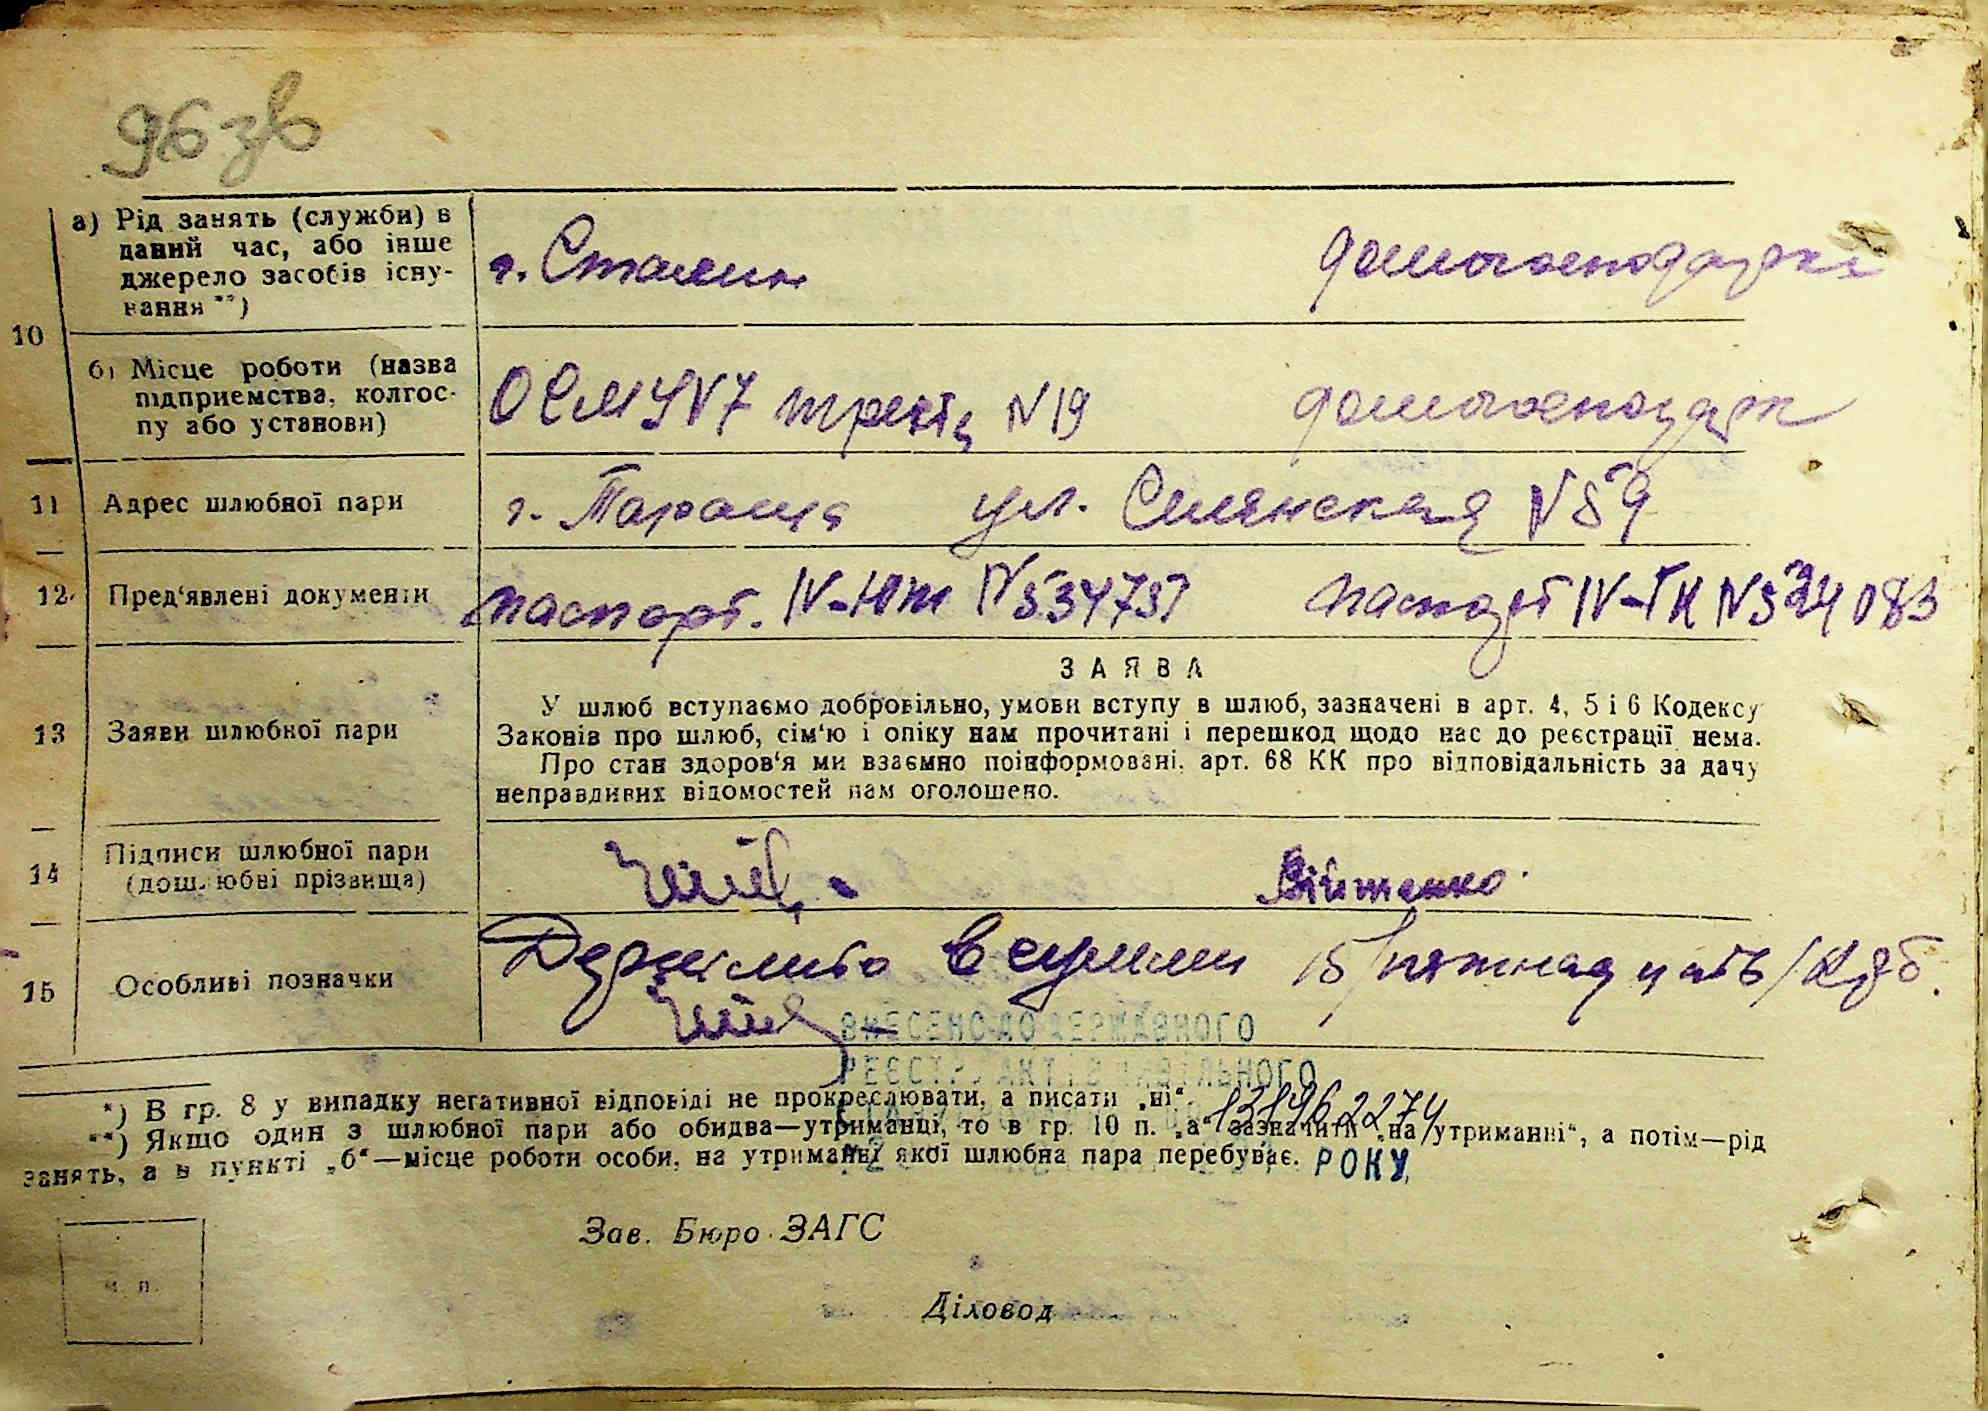 96 зв
а) Рід занять (служби) в
даний час, або інше
джерело засобів існу-
вання **)
г. Сталин
домогосподарка
10
б) Місце роботи (назва
підприємства, колгос-
пу або установи)
ОСМУ N7 N 19
домогосподарк
11 Адрес шлюбної пари
г. Тараща ул. Селянская N 59
12 Пред‘явлені документи
паспорт. IV-ЮП N 534757 паспорт IV-ГК N 524083
З А Я В А
У шлюб вступаємо добровільно, умови вступу в шлюб, зазначені в арт. 4, 5 і 6 Кодексу
13 Заяви шлюбної пари
Законів про шлюб, сім‘ю і опіку нам прочитані і перешкод щодо нас до реєстрації нема.
Про стан здоров‘я ми взаємно поінформовані, арт. 68 КК про відповідальність за дачу
неправдивих відомостей нам оголошено.
14 Підписи шлюбної пари
(дошлюбні прізвища)
Війтенко
15 Особливі позначки
Держмито в сумми 15 /пятнадцать/ крб.
ВНЕСЕНО ДО ДЕРЖАВНОГО
РЕЄСТРУ АКТІВ ЦИВІЛЬНОГО
*) В гр. 8 у випадку негативної відповіді не прокреслювати, а писати „ні“.
**) Якщо один з шлюбної пари або обидва—утриманці, то в гр. 10 п. „а“ зазначити „на утриманні“, а потім—рід
занять, а в пункті „б“—місце роботи особи, на утриманні якої шлюбна пара перебуває.
РОКУ
Зав. Бюро ЗАГС
м. п.
Діловод